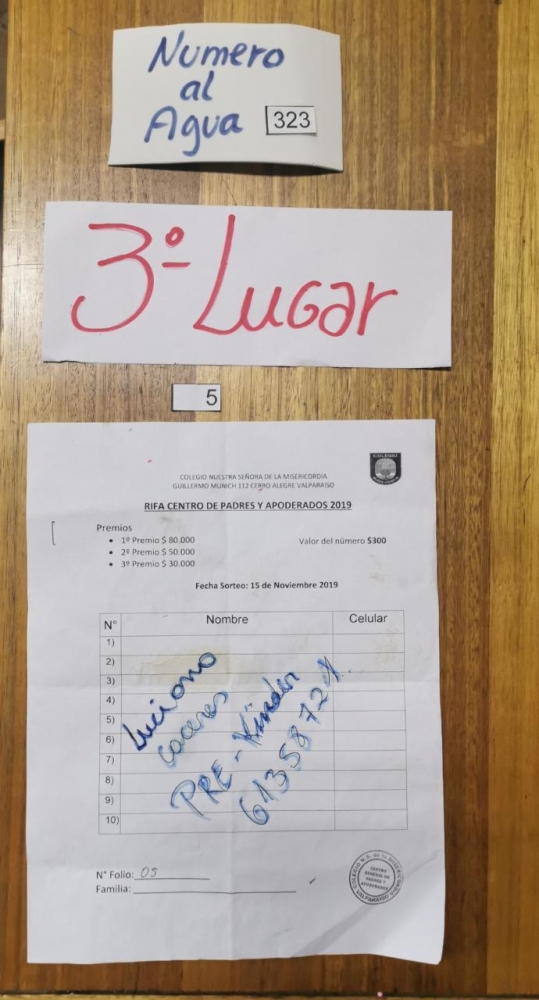 Numero
al
Agua 323
3º Lugar
5
COLEGIO NUESTRA SEÑORA DE LA MISERICORDIA
GUILLERMO MUNICH 112 CERRO ALEGRE VALPARAISO
RIFA CENTRO DE PADRES Y APODERADOS 2019
Premios
• 1º Premio $ 80.000
Valor del número $300
• 2º Premio $ 50.000
• 3º Premio $ 30.000
Fecha Sorteo: 15 de Noviembre 2019
N° Nombre Celular
1)
2)
3)
4)
5)
6)
7)
8)
9)
10)
Luciano
Caceres
PRE - Kinder
61358721
N° Folio: 05
Familia:
COLEGIO N. S. de la MISERICORDIA
CENTRO
GENERAL DE
PADRES Y
APODERADOS
VALPARAISO